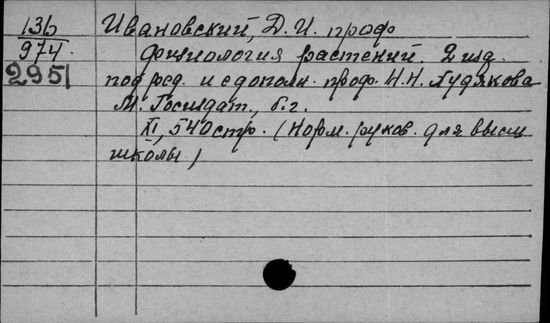 136
974
2951
Ивановский, Д. И. проф
Физиология растений. 2 изд.
под ред. и с дополн. проф. Н. Н. Худякова
М. Госиздат, б. г.
XI, 540 стр. (Норм. руков. для высш
школы)